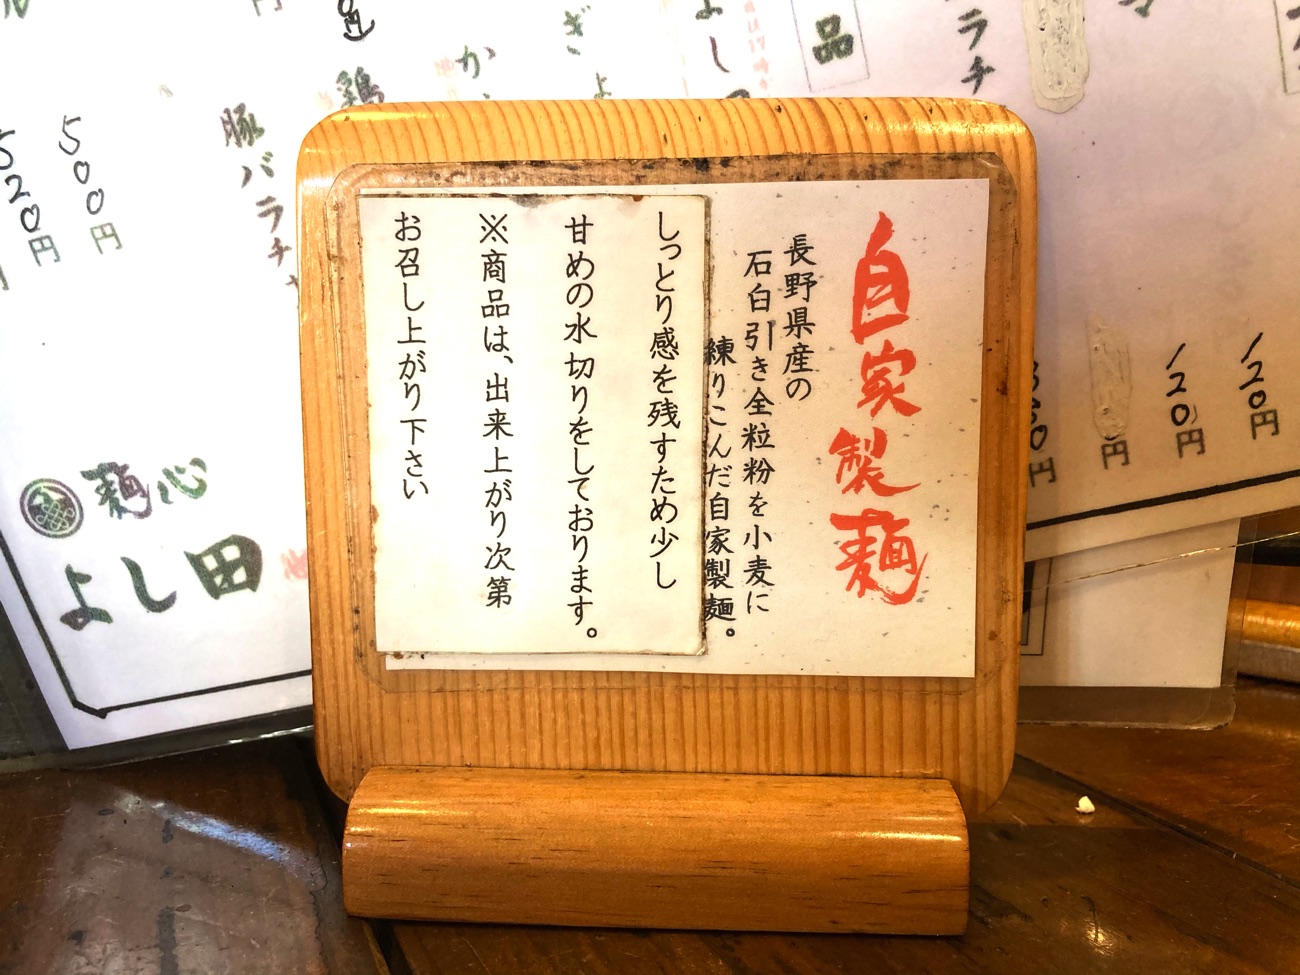 自家製麺
長野県産の
石臼引き全粒粉を小麦に
練りこんだ自家製麺。
しっとり感を残すため少し
甘めの水切りをしております。
※商品は、出来上がり次第
お召し上がり下さい
品
ラチ
よし
ぎょ
か
鶏
豚バラチャ
500円
520円
麺心
よし田
円
円
120円
120円